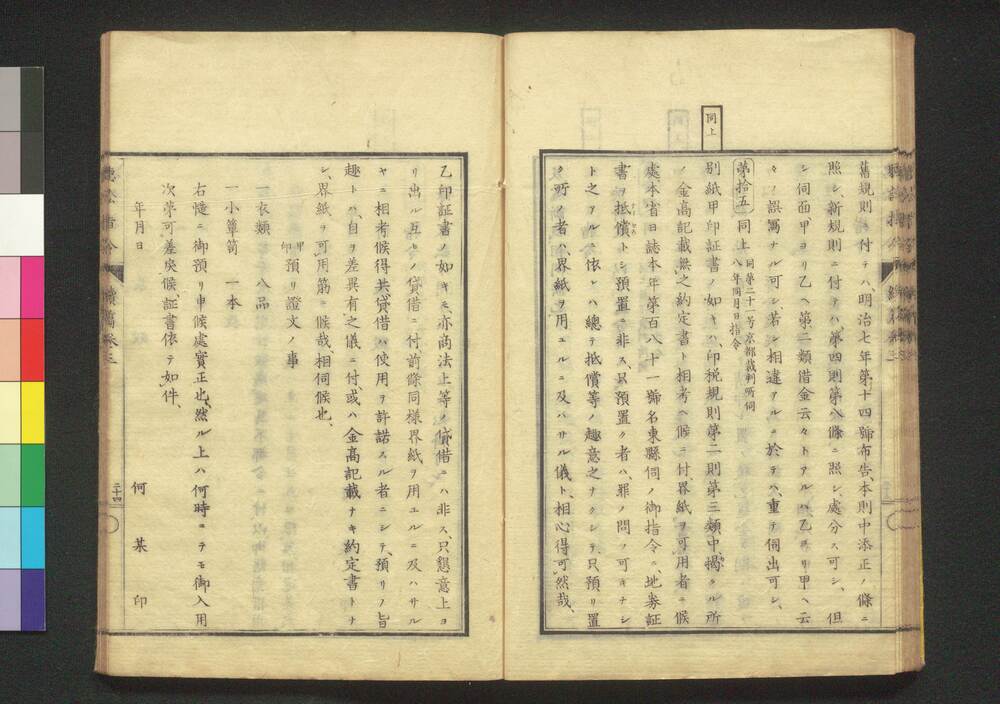 同上
舊規則ニ付テハ、明治七年第七十四號布告、本則中添正ノ條ニ
照シ、新規則ニ付テハ、第四則第八條ニ照シ、處分ス可シ、但
シ伺面、甲ヨリ乙ヘ第二類借金云々トアルハ、乙ヨリ甲ヘ云
々ノ誤寫ナル可シ、若シ相違アルニ於テハ、重テ伺出可シ、
第拾五 同上 同第二十一号京都裁判所伺 八年同月日指令
別紙甲印証書ノ如キハ、印税規則第二則第三類中、揭クル所
ノ金高記載無之約定書ト相考ヘ候ニ付、界紙ヲ可用者ニ候
處、本省日誌本年第百八十一號名東縣伺ノ御指令ニ、地券証
書ヲ抵償トシ預置ニ非ス、只預置ク者ハ、罪ノ問フ可キナシ
ト之アルニ依レハ、總テ抵償等ノ趣意之ナクシテ、只預リ置
ク所ノ者ハ、界紙ヲ用ユルニ及ハサル儀ト、相心得可然哉、
乙印証書ノ如キモ、亦商法上等ノ貸借ニハ非ス、只懇意上ヨ
リ出ル互ヒノ貸借ニ付、前條同様界紙ヲ用エルニ及ハサル
ヤニ相考候得共、貸借ハ使用ヲ許諾スル者ニシテ、預リノ旨
趣トハ、自ヲ差異有之儀ニ付、或ハ金高記載ナキ約定書トナ
シ、界紙ヲ可用筋ニ候哉、相伺候也、
甲印 預リ證文ノ事
一衣類 八品
一小簞笥 一本
右慥ニ御預リ申候處實正也、然ル上ハ何時ニテモ御入用
次第可差戾候、証書依テ如件、
年月日
何某 印
續篇 卷三
二十四